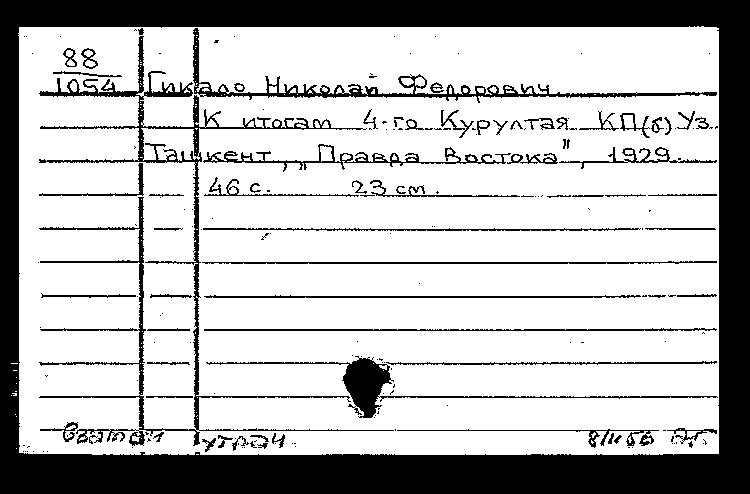 88
1054 Гикало, Николай Федорович
К итогам 4-го Курултая КП(б) Уз
Ташкент, „Правда Востока", 1929.
46 с. 23 см.
взатен утрач.